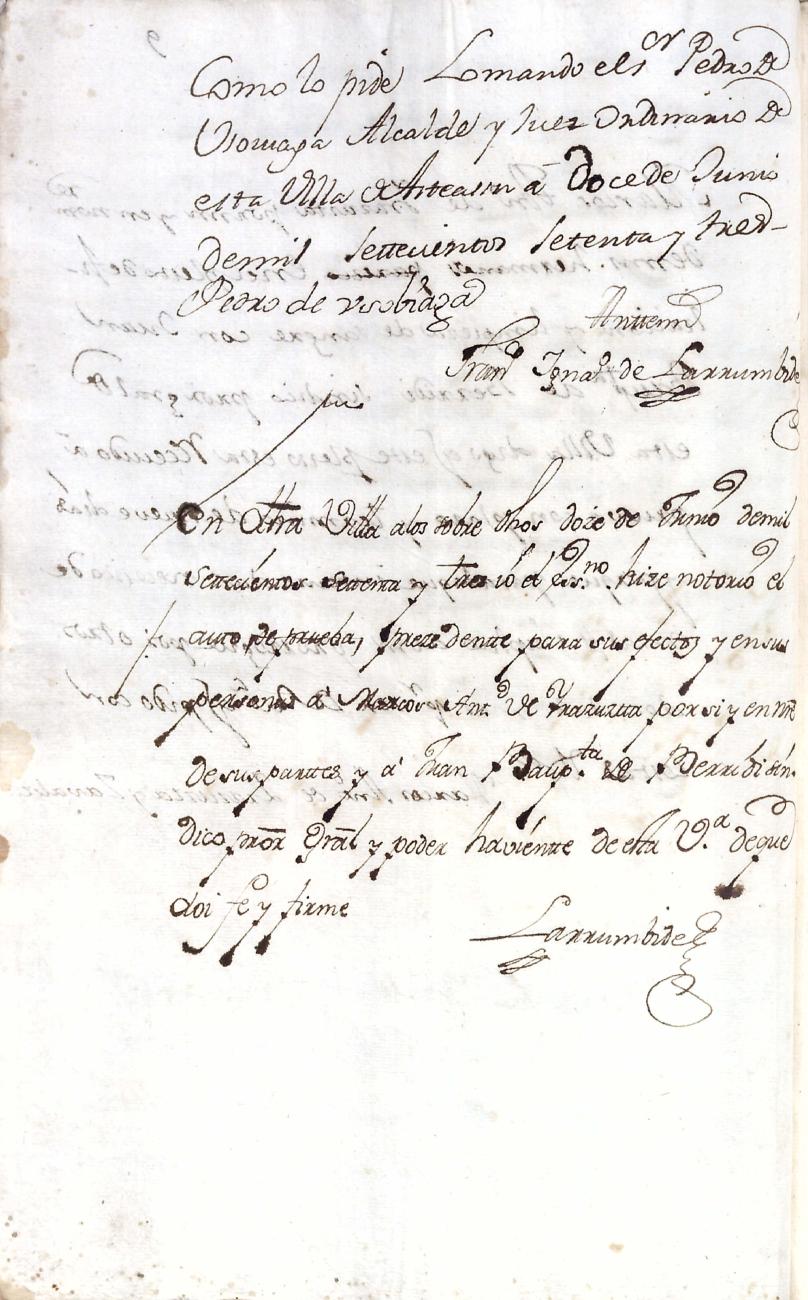 Como lo pide Lomando el s.r Pedro de
Usoviaga Alcalde y Juez Ordinario de
esta Villa de Arteassu a Doce de Junio
de mil settecientos setenta y tres
Pedro de Usobiaga
Antemi
Fran.co Ygna.o de Larrumbide
En dha Villa a los sobre dhos doze de Junio de mil
settecientos settenta y tres io el Ess.no hize notorio el
auto de prueba, prezedente para sus efectos y en sus
personas a Marcos Ant.o de Yrazuzta por si y en nre
de sus partes y a Juan Baup.ta de Berrobi sin
dico pror Gral y poder haviente de esta V.a de que
doi fe y firme
Larrumbide